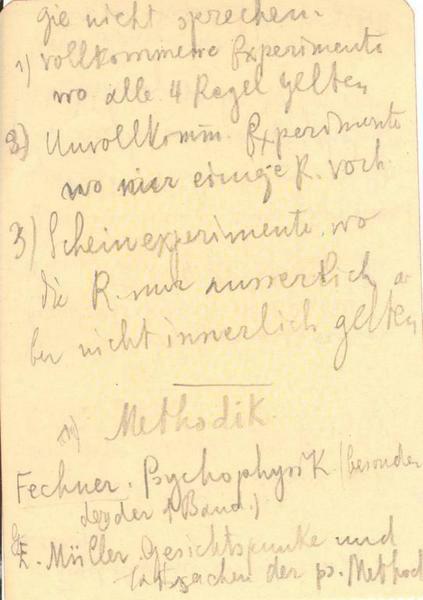 gie nicht sprechen.
1) vollkommene Experimente
wo alle 4 Regel gelten
2) Unvollkomm. Experimente
wo nur einige R. vorh.
3) Scheinexperimente, wo
die R. nur äusserlich a-
ber nicht innerlich gelten
Methodik.
Fechner. Psychophysik (besonder
der 1 Band.)
G. E. Müller. Gesichtspunkte und
Tatsachen der ps. Method